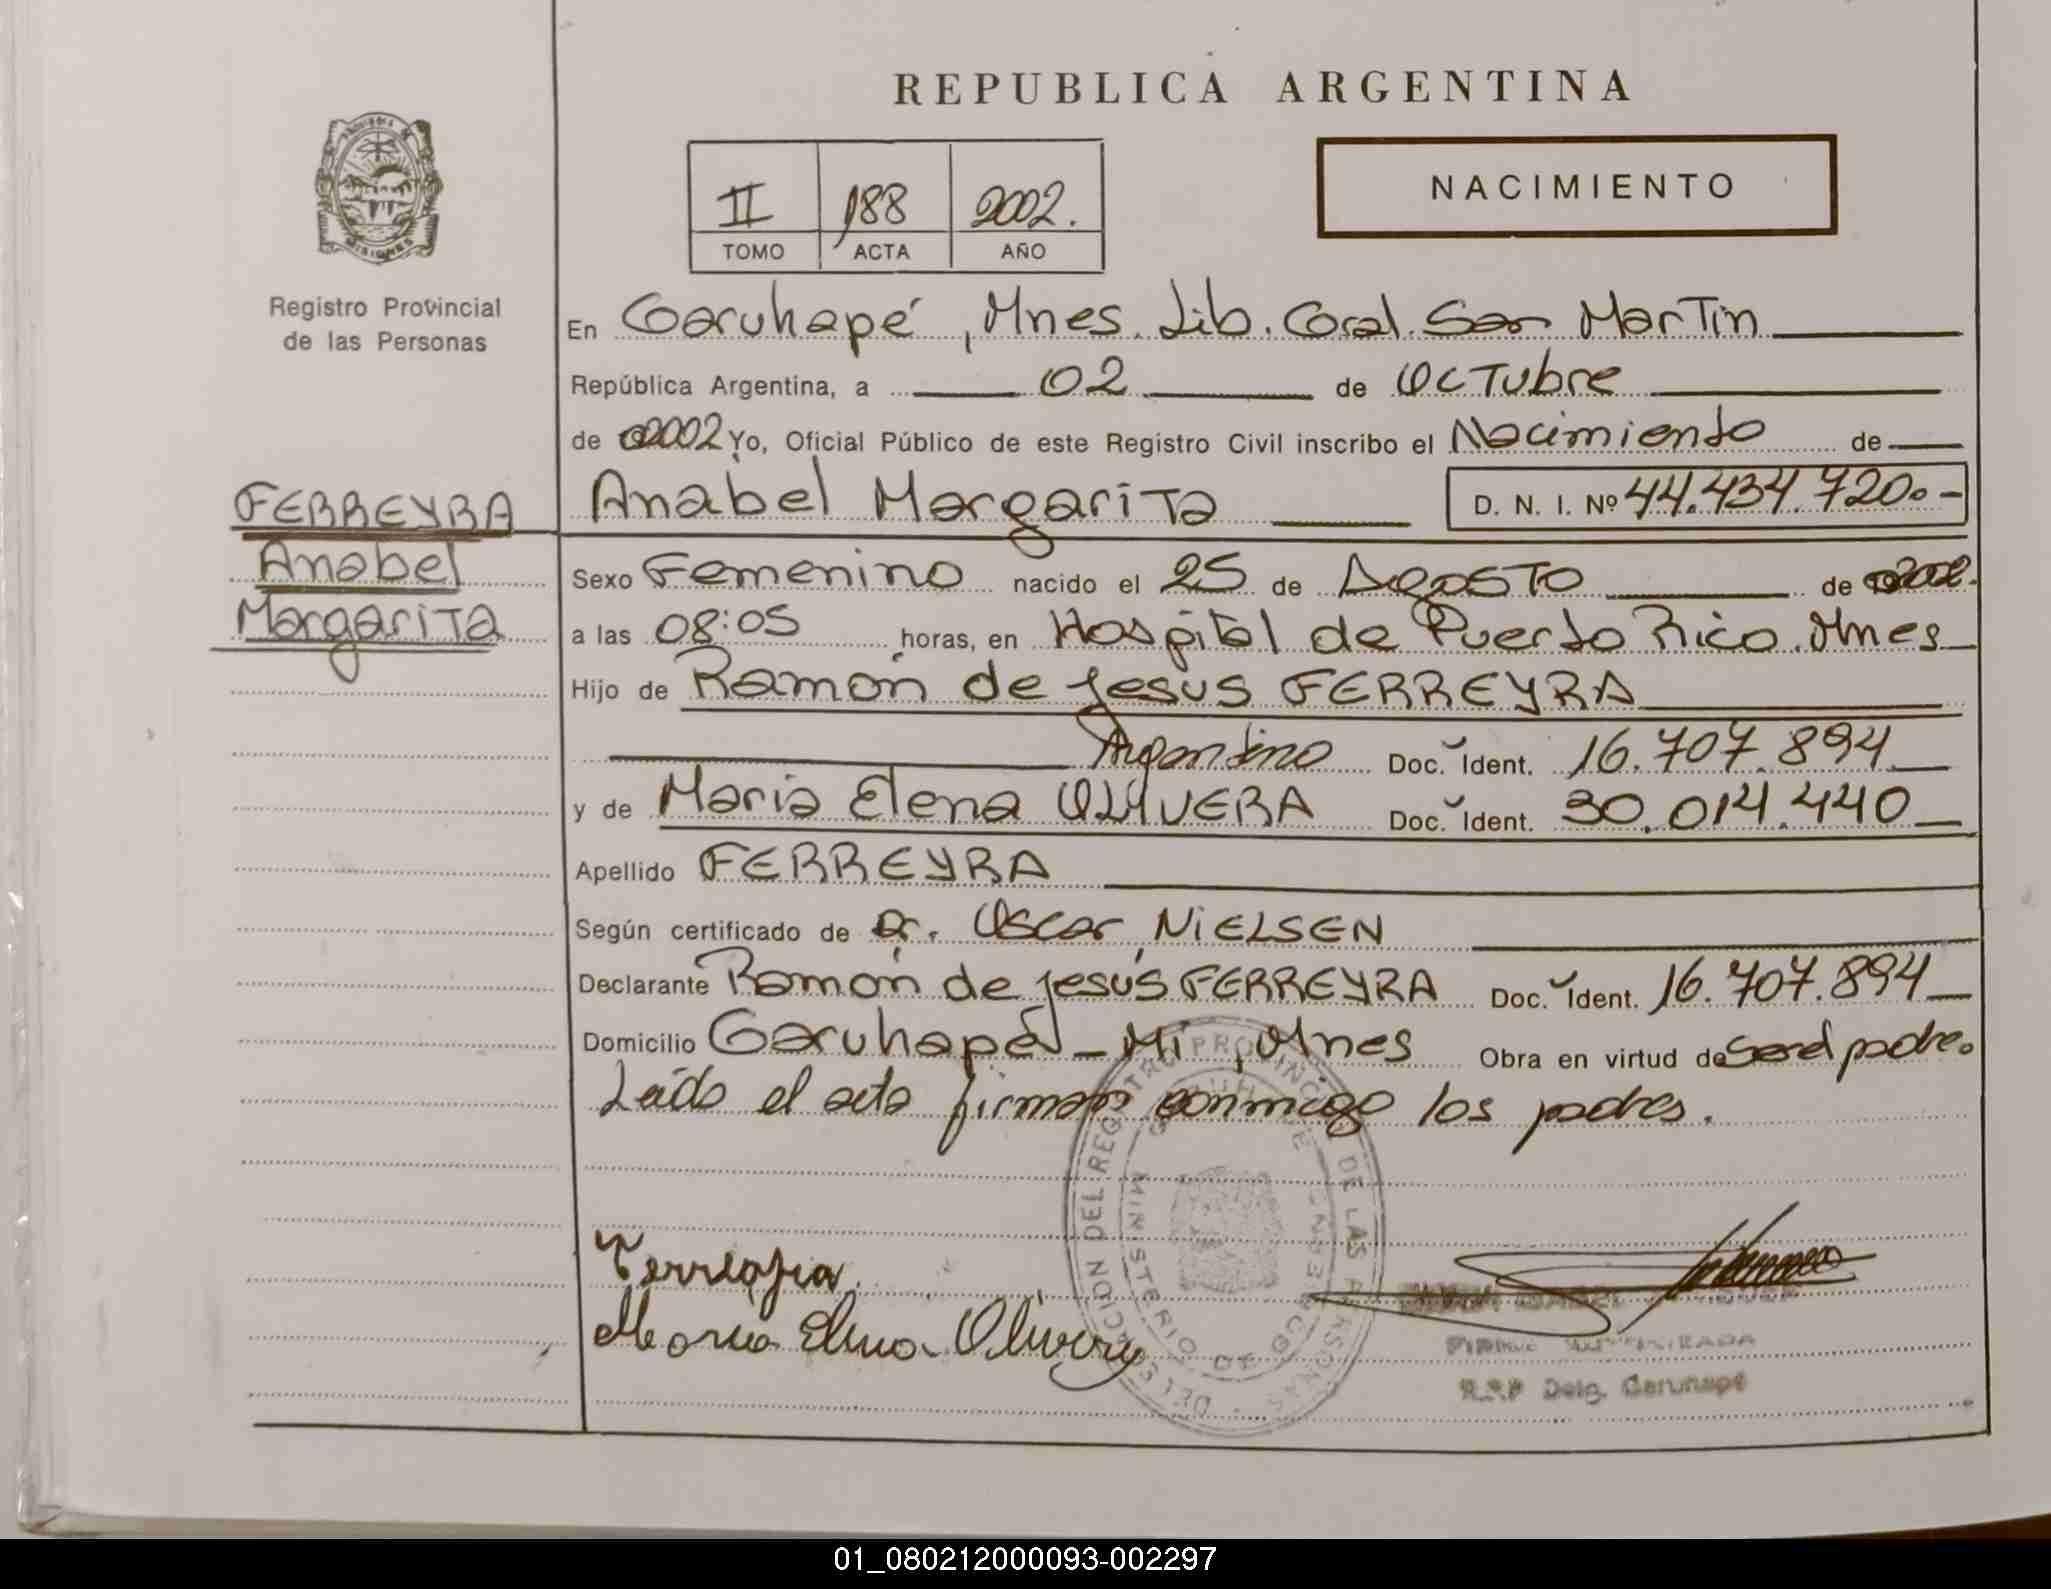 REPUBLICA ARGENTINA
NACIMIENTO
II 188 2002.
TOMO ACTA AÑO
PROVINCIA DE
MISIONES
Registro Provincial
de las Personas
En Garuhapé, Mnes. Lib. Gral. San Martin
República Argentina, a 02 de Octubre
de 2002 Yo, Oficial Público de este Registro Civil inscribo el Nacimiento de
FERREYRA
Anabel
Margarita
Anabel Margarita D. N. I. Nº 44.434.720.-
Sexo Femenino nacido el 25 de Agosto de 2002.
a las 08:05 horas, en Hospital de Puerto Rico. Mnes
Hijo de Ramón de Jesus FERREYRA
Argentino Doc. Ident. 16.707.894
y de Maria Elena OLIVERA Doc. Ident. 30.014.440
Apellido FERREYRA
Según certificado de Dr. Oscar NIELSEN
Declarante Ramón de Jesús FERREYRA Doc. Ident. 16.707.894
Domicilio Garuhapé - Mí, Mnes Obra en virtud de ser el padre.
Leido el acta firman conmigo los padres.
DEL REGISTRO PROVINCIAL DE LAS PERSONAS
MINISTERIO DE GOBIERNO
Maria Elena Olivera
R.P.P Delg. Garuhapé
01_080212000093-002297